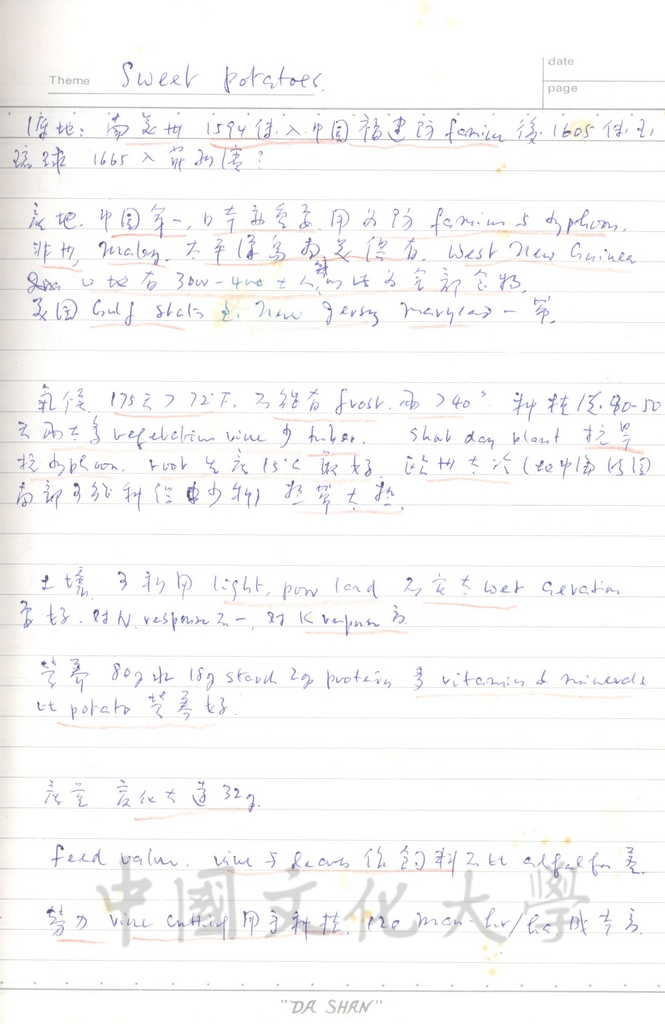 Theme Sweet potatoes
date
page
原地: 南美州 1594 傳入中国福建防 famine 後. 1605 傳至
琉球 1665 入
產地. 中国第一, 日本 用為防 famine 与 typhoon.
非州, Malay. 太平洋島 南美俱有. West New Guinea
山地有 300-400 全部食物.
美国 Gulf states New Jersey Maryland 一帶.
氣候. 175天 > 72°F. 不能有 frost. 雨 > 40" 種植後. 40-50
天雨太多 vegetation vine 少 tuber. short day plant 抗旱
抗 typhoon. root 生長 15°C 最好. 欧州太冷 (地中海
南部可能種但少種) 热帶太热.
土壤. 可利用 light, poor land 不宜太 wet aeration
要好. 对 N. response 不一, 对 K response 高.
营养 80g 水 18g starch 2g protein 多 vitamins & minerals
比 potato 营养好.
產量 变化大 達 32
Feed value. vine 与 leaves 作飼料不比 alfalfa 差.
勞力 vine cutting 用手種植. 120 man-hr/ha 成本高.
中國文化大學
"DA SHAN"